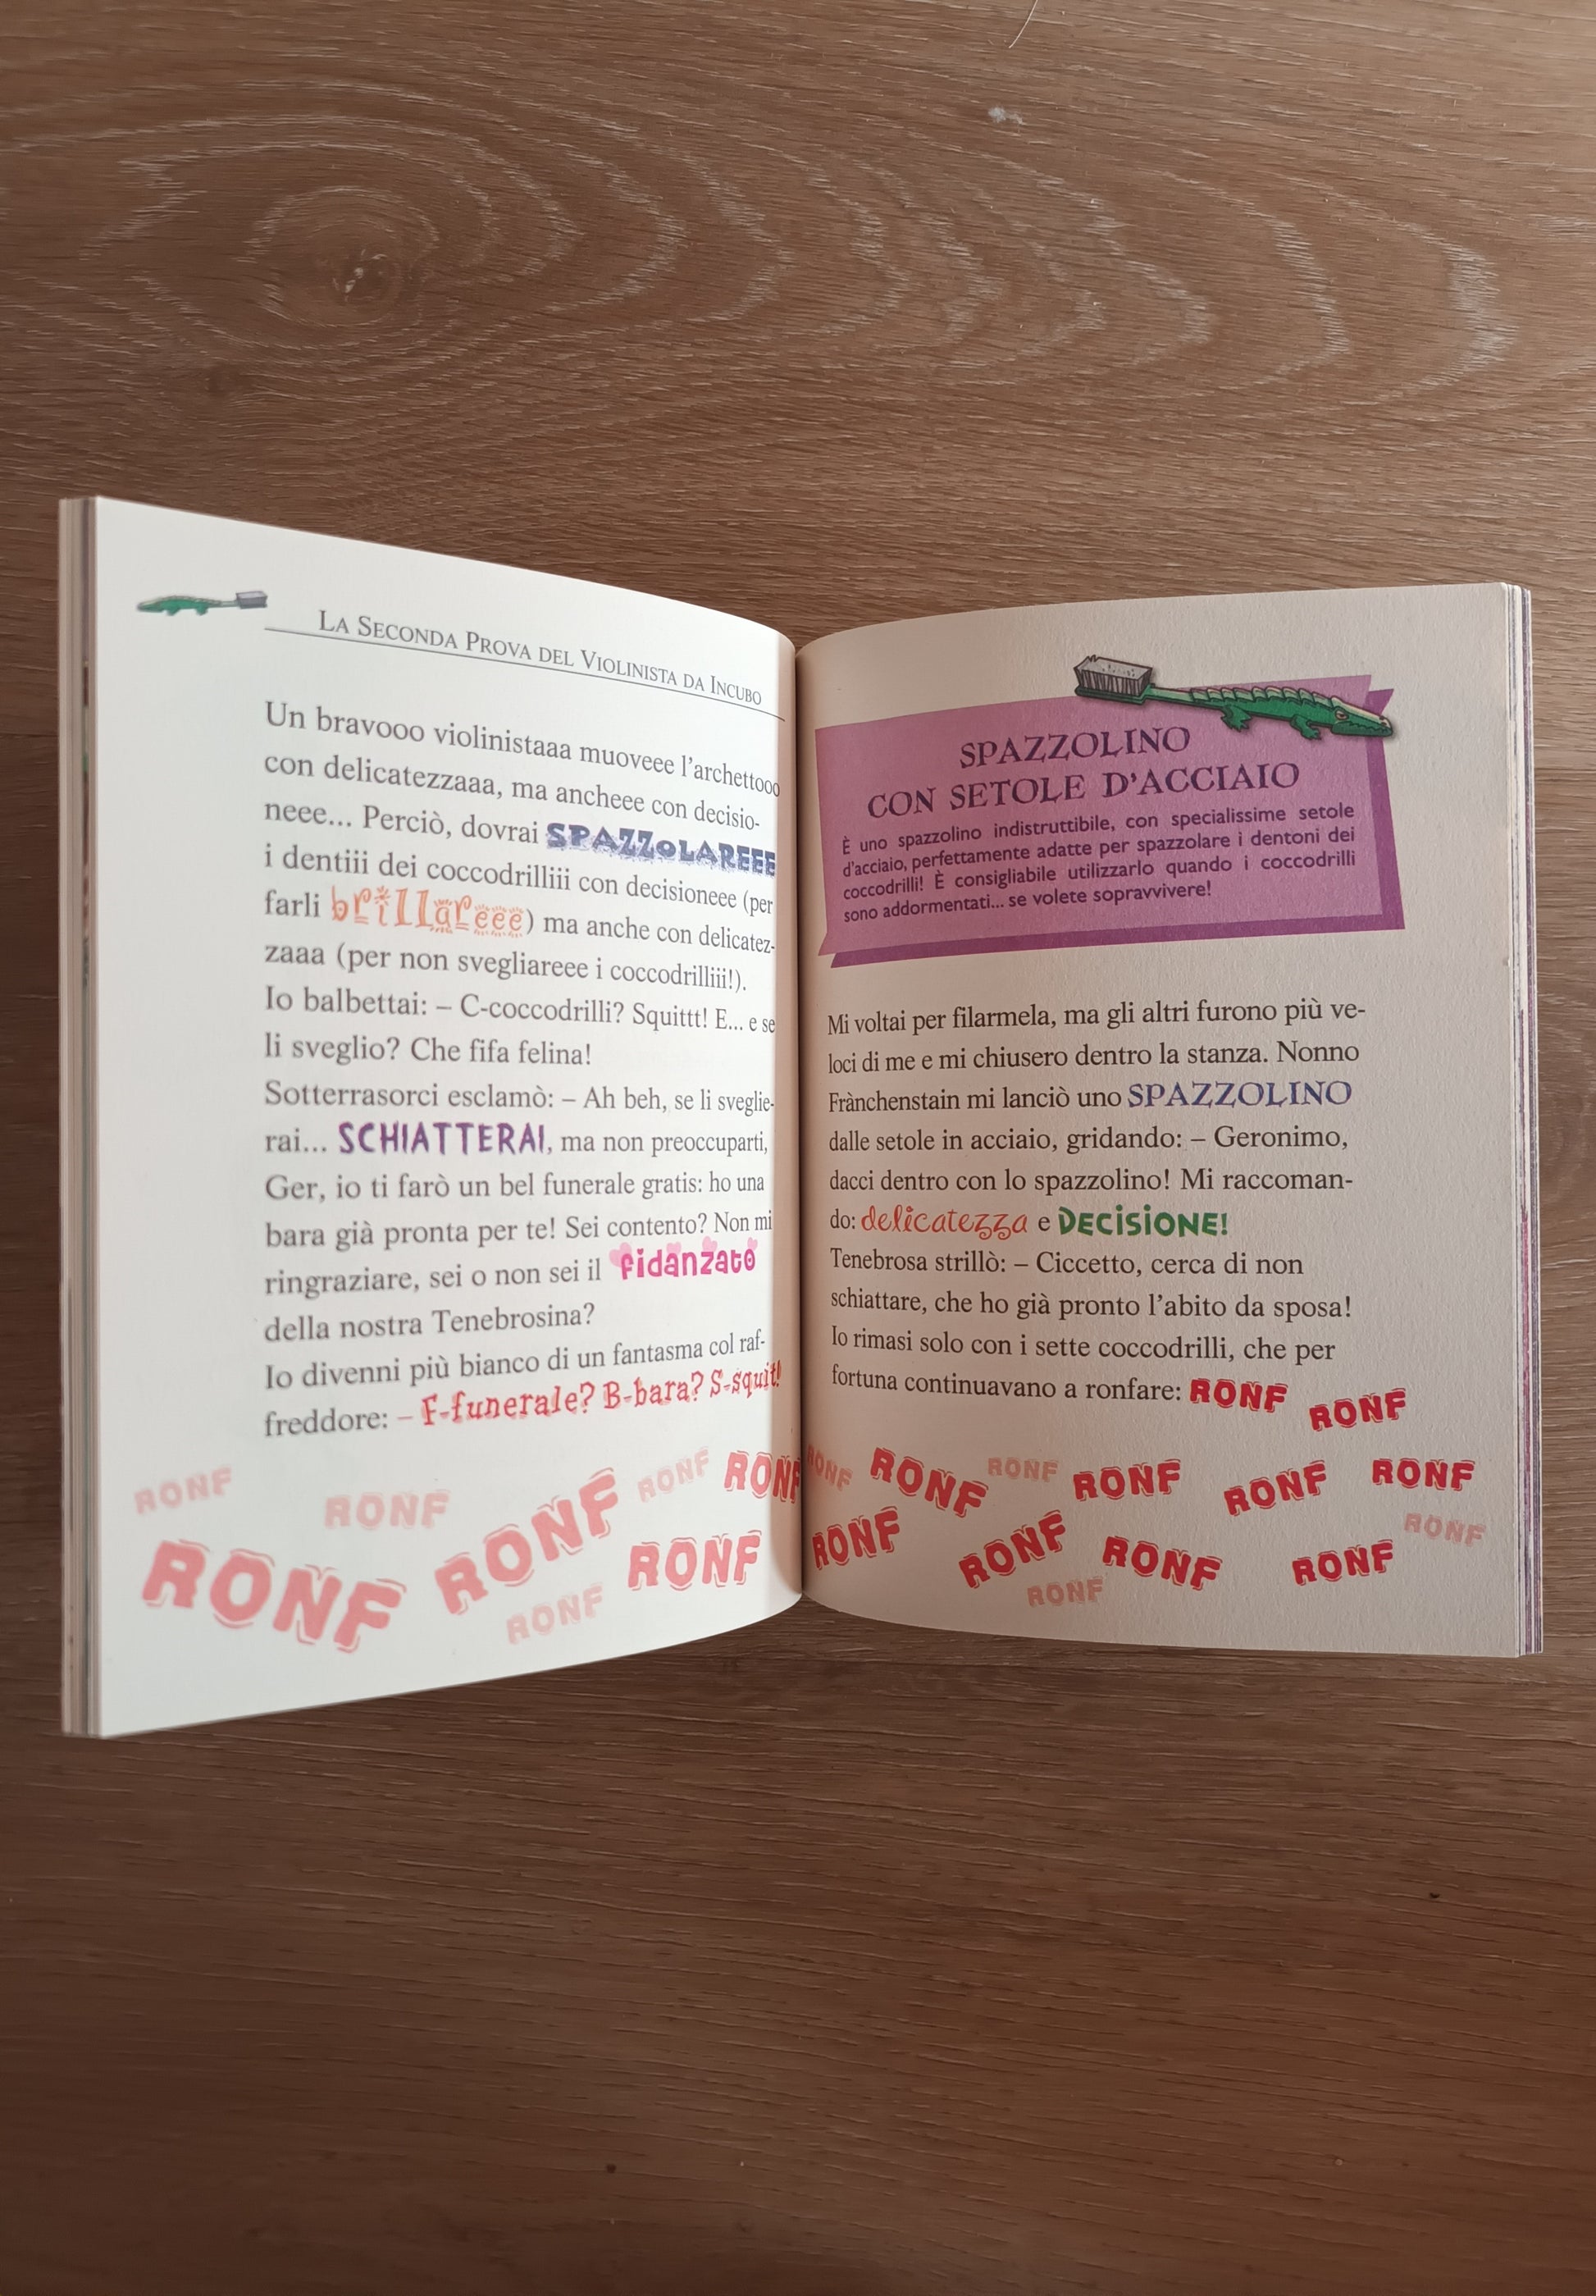 La Seconda Prova del Violinista da Incubo
Un bravooo violinistaaa muoveee l'archettooo
con delicatezzaaa, ma ancheee con decisio-
neee... Perciò, dovrai SPAZZOLAREEE
i dentiii dei coccodrilliii con decisioneee (per
farli brillareeee) ma anche con delicatez-
zaaa (per non svegliareee i coccodrilliii!).
Io balbettai: – C-coccodrilli? Squittt! E... e se
li sveglio? Che fifa felina!
Sotterrasorci esclamò: – Ah beh, se li sveglie-
rai... SCHIATTERAI, ma non preoccuparti,
Ger, io ti farò un bel funerale gratis: ho una
bara già pronta per te! Sei contento? Non mi
ringraziare, sei o non sei il fidanzato
della nostra Tenebrosina?
Io divenni più bianco di un fantasma col raf-
freddore: – F-funerale? B-bara? S-squit!
RONF RONF RONF RONF RONF
RONF RONF RONF
SPAZZOLINO
CON SETOLE D'ACCIAIO
È uno spazzolino indistruttibile, con specialissime setole
d'acciaio, perfettamente adatte per spazzolare i dentoni dei
coccodrilli! È consigliabile utilizzarlo quando i coccodrilli
sono addormentati... se volete sopravvivere!
Mi voltai per filarmela, ma gli altri furono più ve-
loci di me e mi chiusero dentro la stanza. Nonno
Frànchenstain mi lanciò uno SPAZZOLINO
dalle setole in acciaio, gridando: – Geronimo,
dacci dentro con lo spazzolino! Mi raccoman-
do: delicatezza e DECISIONE!
Tenebrosa strillò: – Ciccetto, cerca di non
schiattare, che ho già pronto l'abito da sposa!
Io rimasi solo con i sette coccodrilli, che per
fortuna continuavano a ronfare: RONF RONF
RONF RONF RONF RONF RONF RONF
RONF RONF RONF RONF RONF
RONF